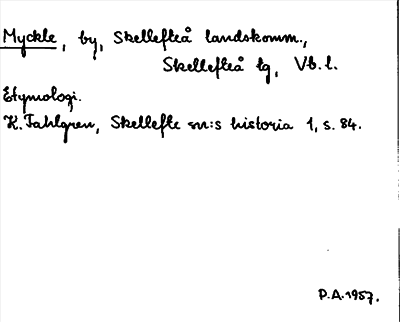 Myckle, by, Skellefteå landskomm.,
Skellefteå tg, Vb. l.
Etymologi.
K. Fahlgren, Skellefte sn:s historia 1, s. 84.
P.A. 1957.